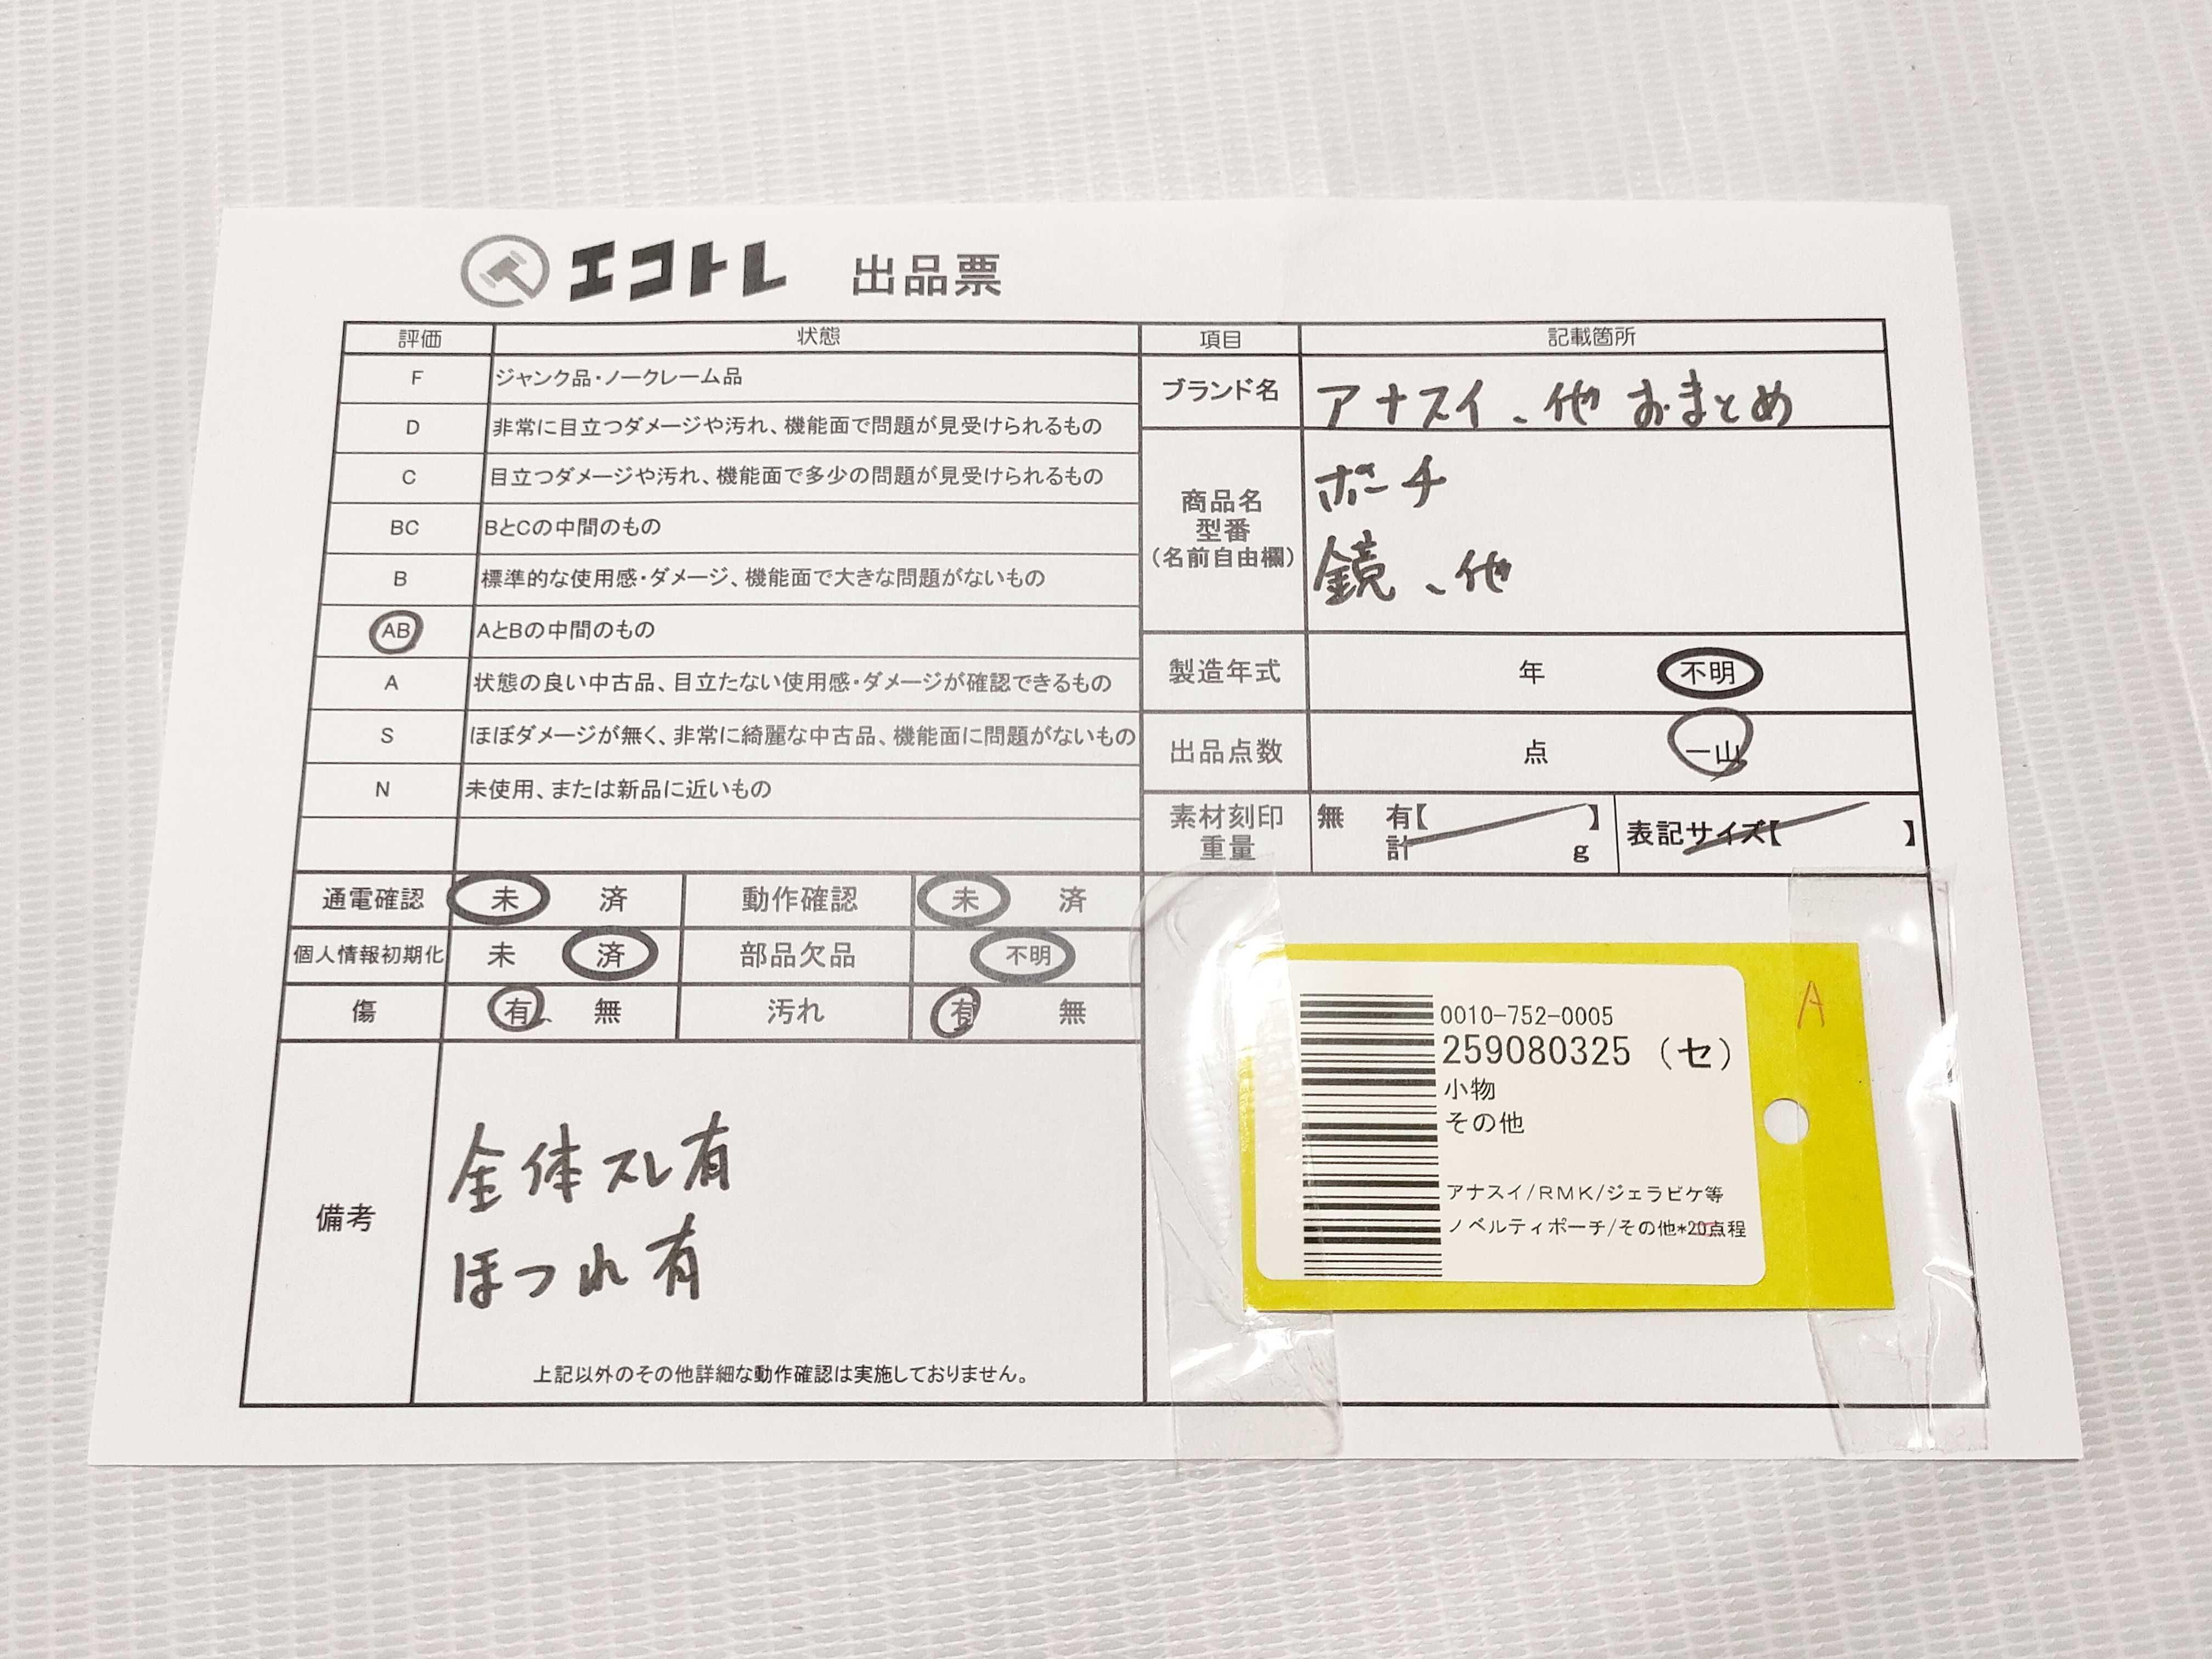 エコトレ 出品票
評価 状態
F ジャンク品・ノークレーム品
D 非常に目立つダメージや汚れ、機能面で問題が見受けられるもの
C 目立つダメージや汚れ、機能面で多少の問題が見受けられるもの
BC BとCの中間のもの
B 標準的な使用感・ダメージ、機能面で大きな問題がないもの
AB AとBの中間のもの
A 状態の良い中古品、目立たない使用感・ダメージが確認できるもの
S ほぼダメージが無く、非常に綺麗な中古品、機能面に問題がないもの
N 未使用、または新品に近いもの
項目 記載箇所
ブランド名 アナスイ、他 おまとめ
商品名
型番
（名前自由欄）
ポーチ
鏡、他
製造年式 年 不明
出品点数 点 一山
素材刻印
重量
無 有【 】
計 g
表記サイズ【 】
通電確認 未 済 動作確認 未 済
個人情報初期化 未 済 部品欠品 不明
傷 有 無 汚れ 有 無
備考
全体スレ有
ほつれ有
上記以外のその他詳細な動作確認は実施しておりません。
A
0010-752-0005
259080325（セ）
小物
その他
アナスイ/RMK/ジェラピケ等
ノベルティポーチ/その他*20点程